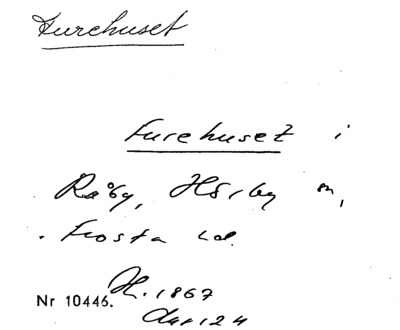 Furehuset
Furehuset i
Råby, Hörby sn,
Frosta hd.
Nr 10446. H. 1867